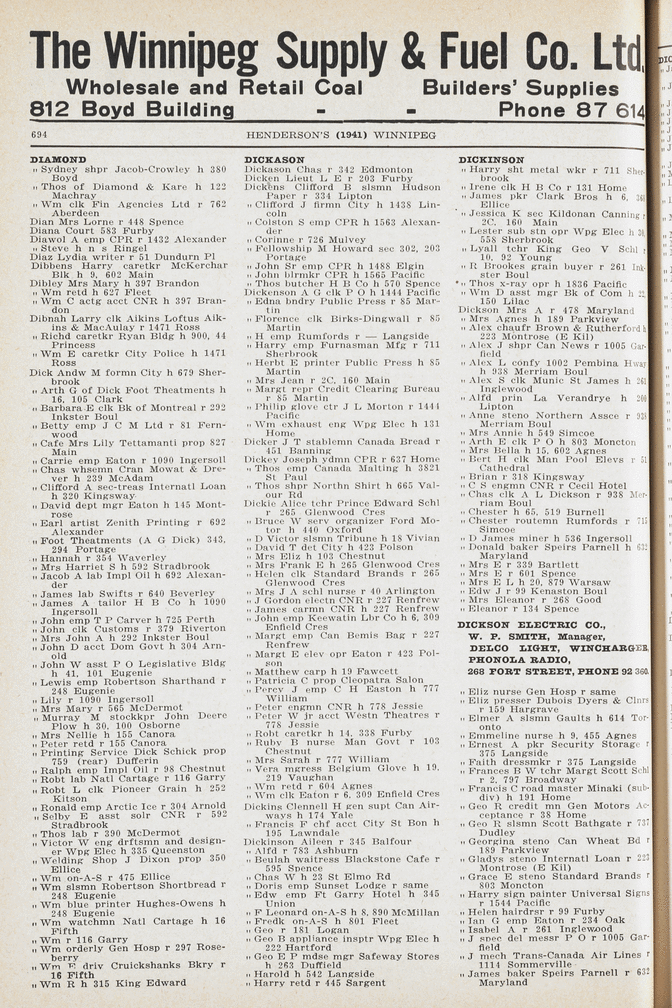 The Winnipeg Supply & Fuel Co. Ltd.
Wholesale and Retail Coal Builders' Supplies
812 Boyd Building - - Phone 87 614
694 HENDERSON'S (1941) WINNIPEG
DIAMOND
„ Sydney shpr Jacob-Crowley h 380
Boyd
„ Thos of Diamond & Kare h 122
Machray
„ Wm clk Fin Agencies Ltd r 762
Aberdeen
Dian Mrs Lorne r 448 Spence
Diana Court 583 Furby
Diawol A emp CPR r 1432 Alexander
„ Steve h n s Ringel
Diaz Lydia writer r 51 Dundurn Pl
Dibbens Harry caretkr McKerchar
Blk h 9, 602 Main
Dibley Mrs Mary h 397 Brandon
„ Wm retd h 627 Fleet
„ Wm C actg acct CNR h 397 Bran-
don
Dibnah Larry clk Aikins Loftus Aik-
ins & MacAulay r 1471 Ross
„ Richd caretkr Ryan Bldg h 900, 44
Princess
„ Wm E caretkr City Police h 1471
Ross
Dick Andw M formn City h 679 Sher-
brook
„ Arth G of Dick Foot Theatments h
16, 105 Clark
„ Barbara E clk Bk of Montreal r 292
Inkster Boul
„ Betty emp J C M Ltd r 81 Fern-
wood
„ Cafe Mrs Lily Tettamanti prop 827
Main
„ Carrie emp Eaton r 1090 Ingersoll
„ Chas whsemn Cran Mowat & Dre-
ver h 239 McAdam
„ Clifford A sec-treas Internatl Loan
h 320 Kingsway
„ David dept mgr Eaton h 145 Mont-
rose
„ Earl artist Zenith Printing r 692
Alexander
„ Foot Theatments (A G Dick) 343,
294 Portage
„ Hannah r 354 Waverley
„ Mrs Harriet S h 592 Stradbrook
„ Jacob A lab Impl Oil h 692 Alexan-
der
„ James lab Swifts r 640 Beverley
„ James A tailor H B Co h 1090
Ingersoll
„ John emp T P Carver h 725 Perth
„ John clk Customs r 379 Riverton
„ Mrs John A h 292 Inkster Boul
„ John D acct Dom Govt h 304 Arn-
old
„ John W asst P O Legislative Bldg
h 41, 101 Eugenie
„ Lewis emp Robertson Sharthand r
248 Eugenie
„ Lily r 1090 Ingersoll
„ Mrs Mary r 565 McDermot
„ Murray M stockkpr John Deere
Plow h 30, 100 Osborne
„ Mrs Nellie h 155 Canora
„ Peter retd r 155 Canora
„ Printing Service Dick Schick prop
759 (rear) Dufferin
„ Ralph emp Impl Oil r 98 Chestnut
„ Robt lab Natl Cartage r 116 Garry
„ Robt L clk Pioneer Grain h 252
Kitson
„ Ronald emp Arctic Ice r 304 Arnold
„ Selby E asst solr CNR r 592
Stradbrook
„ Thos lab r 390 McDermot
„ Victor W eng drftsmn and design-
er Wpg Elec h 335 Queenston
„ Welding Shop J Dixon prop 350
Ellice
„ Wm on-A-S r 475 Ellice
„ Wm slsmn Robertson Shortbread r
248 Eugenie
„ Wm blue printer Hughes-Owens h
248 Eugenie
„ Wm watchmn Natl Cartage h 16
Fifth
„ Wm r 116 Garry
„ Wm orderly Gen Hosp r 297 Rose-
berry
„ Wm F driv Cruickshanks Bkry r
16 Fifth
„ Wm R h 315 King Edward
DICKASON
Dickason Chas r 342 Edmonton
Dicken Lieut L E r 203 Furby
Dickens Clifford B slsmn Hudson
Paper r 334 Lipton
„ Clifford J firmn City h 1438 Lin-
coln
„ Colston S emp CPR h 1563 Alexan-
der
„ Corinne r 726 Mulvey
„ Fellowship M Howard sec 302, 203
Portage
„ John Sr emp CPR h 1488 Elgin
„ John blrmkr CPR h 1565 Pacific
„ Thos butcher H B Co h 570 Spence
Dickenson A G clk P O h 1444 Pacific
„ Edna bndry Public Press r 85 Mar-
tin
„ Florence clk Birks-Dingwall r 85
Martin
„ H emp Rumfords r — Langside
„ Harry emp Furnasman Mfg r 711
Sherbrook
„ Herbt E printer Public Press h 85
Martin
„ Mrs Jean r 2C, 160 Main
„ Margt repr Credit Clearing Bureau
r 85 Martin
„ Philip glove ctr J L Morton r 1444
Pacific
„ Wm exhaust eng Wpg Elec h 131
Home
Dicker J T stablemn Canada Bread r
451 Banning
Dickey Joseph ydmn CPR r 637 Home
„ Thos emp Canada Malting h 3821
St Paul
„ Thos shpr Northn Shirt h 665 Val-
our Rd
Dickie Alice tchr Prince Edward Schl
r 265 Glenwood Cres
„ Bruce W serv organizer Ford Mo-
tor h 440 Oxford
„ D Victor slsmn Tribune h 18 Vivian
„ David T det City h 423 Polson
„ Mrs Eliz h 103 Chestnut
„ Mrs Frank E h 265 Glenwood Cres
„ Helen clk Standard Brands r 265
Glenwood Cres
„ Mrs J A schl nurse r 40 Arlington
„ J Gordon electn CNR r 227 Renfrew
„ James carmn CNR h 227 Renfrew
„ John emp Keewatin Lbr Co h 6, 309
Enfield Cres
„ Margt emp Can Bemis Bag r 227
Renfrew
„ Margt E elev opr Eaton r 423 Pol-
son
„ Matthew carp h 19 Fawcett
„ Patricia C prop Cleopatra Salon
„ Percy J emp C H Easton h 777
William
„ Peter engmn CNR h 778 Jessie
„ Peter W jr acct Westn Theatres r
778 Jessie
„ Robt caretkr h 14, 338 Furby
„ Ruby B nurse Man Govt r 103
Chestnut
„ Mrs Sarah r 777 William
„ Vera mgress Belgium Glove h 19,
219 Vaughan
„ Wm retd r 604 Agnes
„ Wm clk Eaton r 6, 309 Enfield Cres
Dickins Clennell H gen supt Can Air-
ways h 174 Yale
„ Francis F chf acct City St Bon h
195 Lawndale
Dickinson Aileen r 345 Balfour
„ Alfd r 783 Ashburn
„ Beulah waitress Blackstone Cafe r
595 Spence
„ Chas W h 23 St Elmo Rd
„ Doris emp Sunset Lodge r same
„ Edw emp Ft Garry Hotel h 345
Union
„ F Leonard on-A-S h 8, 890 McMillan
„ Fredk on-A-S h 801 Fleet
„ Geo r 181 Logan
„ Geo B appliance insptr Wpg Elec h
222 Hartford
„ Geo E P mdse mgr Safeway Stores
h 263 Duffield
„ Harold h 542 Langside
„ Harry retd r 445 Sargent
DICKINSON
„ Harry sht metal wkr r 711 Sher-
brook
„ Irene clk H B Co r 131 Home
„ James pkr Clark Bros h 6,
Ellice
„ Jessica K sec Kildonan Canning r
2C, 160 Main
„ Lester sub stn opr Wpg Elec h
558 Sherbrook
„ Lyall tchr King Geo V Schl r
10, 92 Young
„ R Brookes grain buyer r 261 Ink-
ster Boul
*„ Thos x-ray opr h 1836 Pacific
„ Wm D asst mgr Bk of Com h
150 Lilac
Dickson Mrs A r 478 Maryland
„ Mrs Agnes h 189 Parkview
„ Alex chaufr Brown & Rutherford h
223 Montrose (E Kil)
„ Alex J shpr Can News r 1005 Gar-
field
„ Alex L confy 1002 Pembina Hway
h 938 Merriam Boul
„ Alex S clk Munic St James h 261
Inglewood
„ Alfd prin La Verandrye h
Lipton
„ Anne steno Northern Assce r 938
Merriam Boul
„ Mrs Annie h 549 Simcoe
„ Arth E clk P O h 803 Moncton
„ Mrs Bella h 15, 602 Agnes
„ Bert H clk Man Pool Elevs r
Cathedral
„ Brian r 318 Kingsway
„ C S engmn CNR r Cecil Hotel
„ Chas clk A L Dickson r 938 Mer-
riam Boul
„ Chester h 65, 519 Burnell
„ Chester routemn Rumfords r
Simcoe
„ D James miner h 536 Ingersoll
„ Donald baker Speirs Parnell h 632
Maryland
„ Mrs E r 339 Bartlett
„ Mrs E r 601 Spence
„ Mrs E L h 20, 879 Warsaw
„ Edw J r 99 Kenaston Boul
„ Mrs Eleanor r 268 Good
„ Eleanor r 134 Spence
DICKSON ELECTRIC CO.,
W. P. SMITH, Manager,
DELCO LIGHT, WINCHARGER,
PHONOLA RADIO,
268 FORT STREET, PHONE 92 360
„ Eliz nurse Gen Hosp r same
„ Eliz presser Dubois Dyers & Clnrs
r 159 Hargrave
„ Elmer A slsmn Gaults h 614 Tor-
onto
„ Emmeline nurse h 9, 455 Agnes
„ Ernest A pkr Security Storage r
375 Langside
„ Faith dressmkr r 375 Langside
„ Frances B W tchr Margt Scott Schl
r 2, 797 Broadway
„ Francis C road master Minaki (sub-
div) h 191 Home
„ Geo R credit mn Gen Motors Ac-
ceptance r 38 Home
„ Geo R slsmn Scott Bathgate r 737
Dudley
„ Georgina steno Can Wheat Bd r
189 Parkview
„ Gladys steno Internatl Loan r 223
Montrose (E Kil)
„ Grace E steno Standard Brands r
803 Moncton
„ Harry sign painter Universal Signs
r 1544 Pacific
„ Helen hairdrsr r 99 Furby
„ Ian G emp Eaton r 234 Oak
„ Isabel A r 261 Inglewood
„ J spec del messr P O r 1005 Gar-
field
„ J mech Trans-Canada Air Lines r
1114 Sommerville
„ James baker Speirs Parnell r 632
Maryland